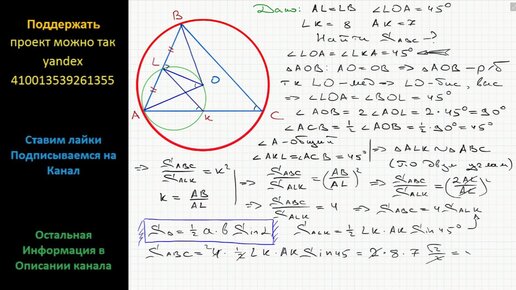 Поддержать
проект можно так
yandex
410013539261355
Ставим лайки
Подписываемся на
Канал
Остальная
Информация в
Описании канала
B
L
O
A
K
C
Дано: AL=LB ∠LOA=45°
LK=8 AK=7
Найти S_ABC-?
∠LOA=∠LKA=45°
△AOB: AO=OB ⇒ △AOB-р/б
тк LO-мед ⇒ LO-бис, выс
⇒ ∠LOA=∠BOL=45°
∠AOB=2∠AOL=2·45°=90°
∠ACB=½∠AOB=½·90°=45°
∠A-общий
∠AKL=∠ACB=45° ⇒ △ALK∾△ABC
(по двум углам)
⇒ S_ABC/S_ALK=k²
k=AB/AL
⇒ S_ABC/S_ALK=(AB/AL)² ⇒ S_ABC/S_ALK=(2AL/AL)²
⇒ S_ABC/S_ALK=4 ⇒ S_ABC=4S_ALK
S_△=½ a·b Sin∠ S_ALK=½ LK·AK Sin45°
S_ABC=4·½ LK·AK Sin45=2·8·7 √2/2=